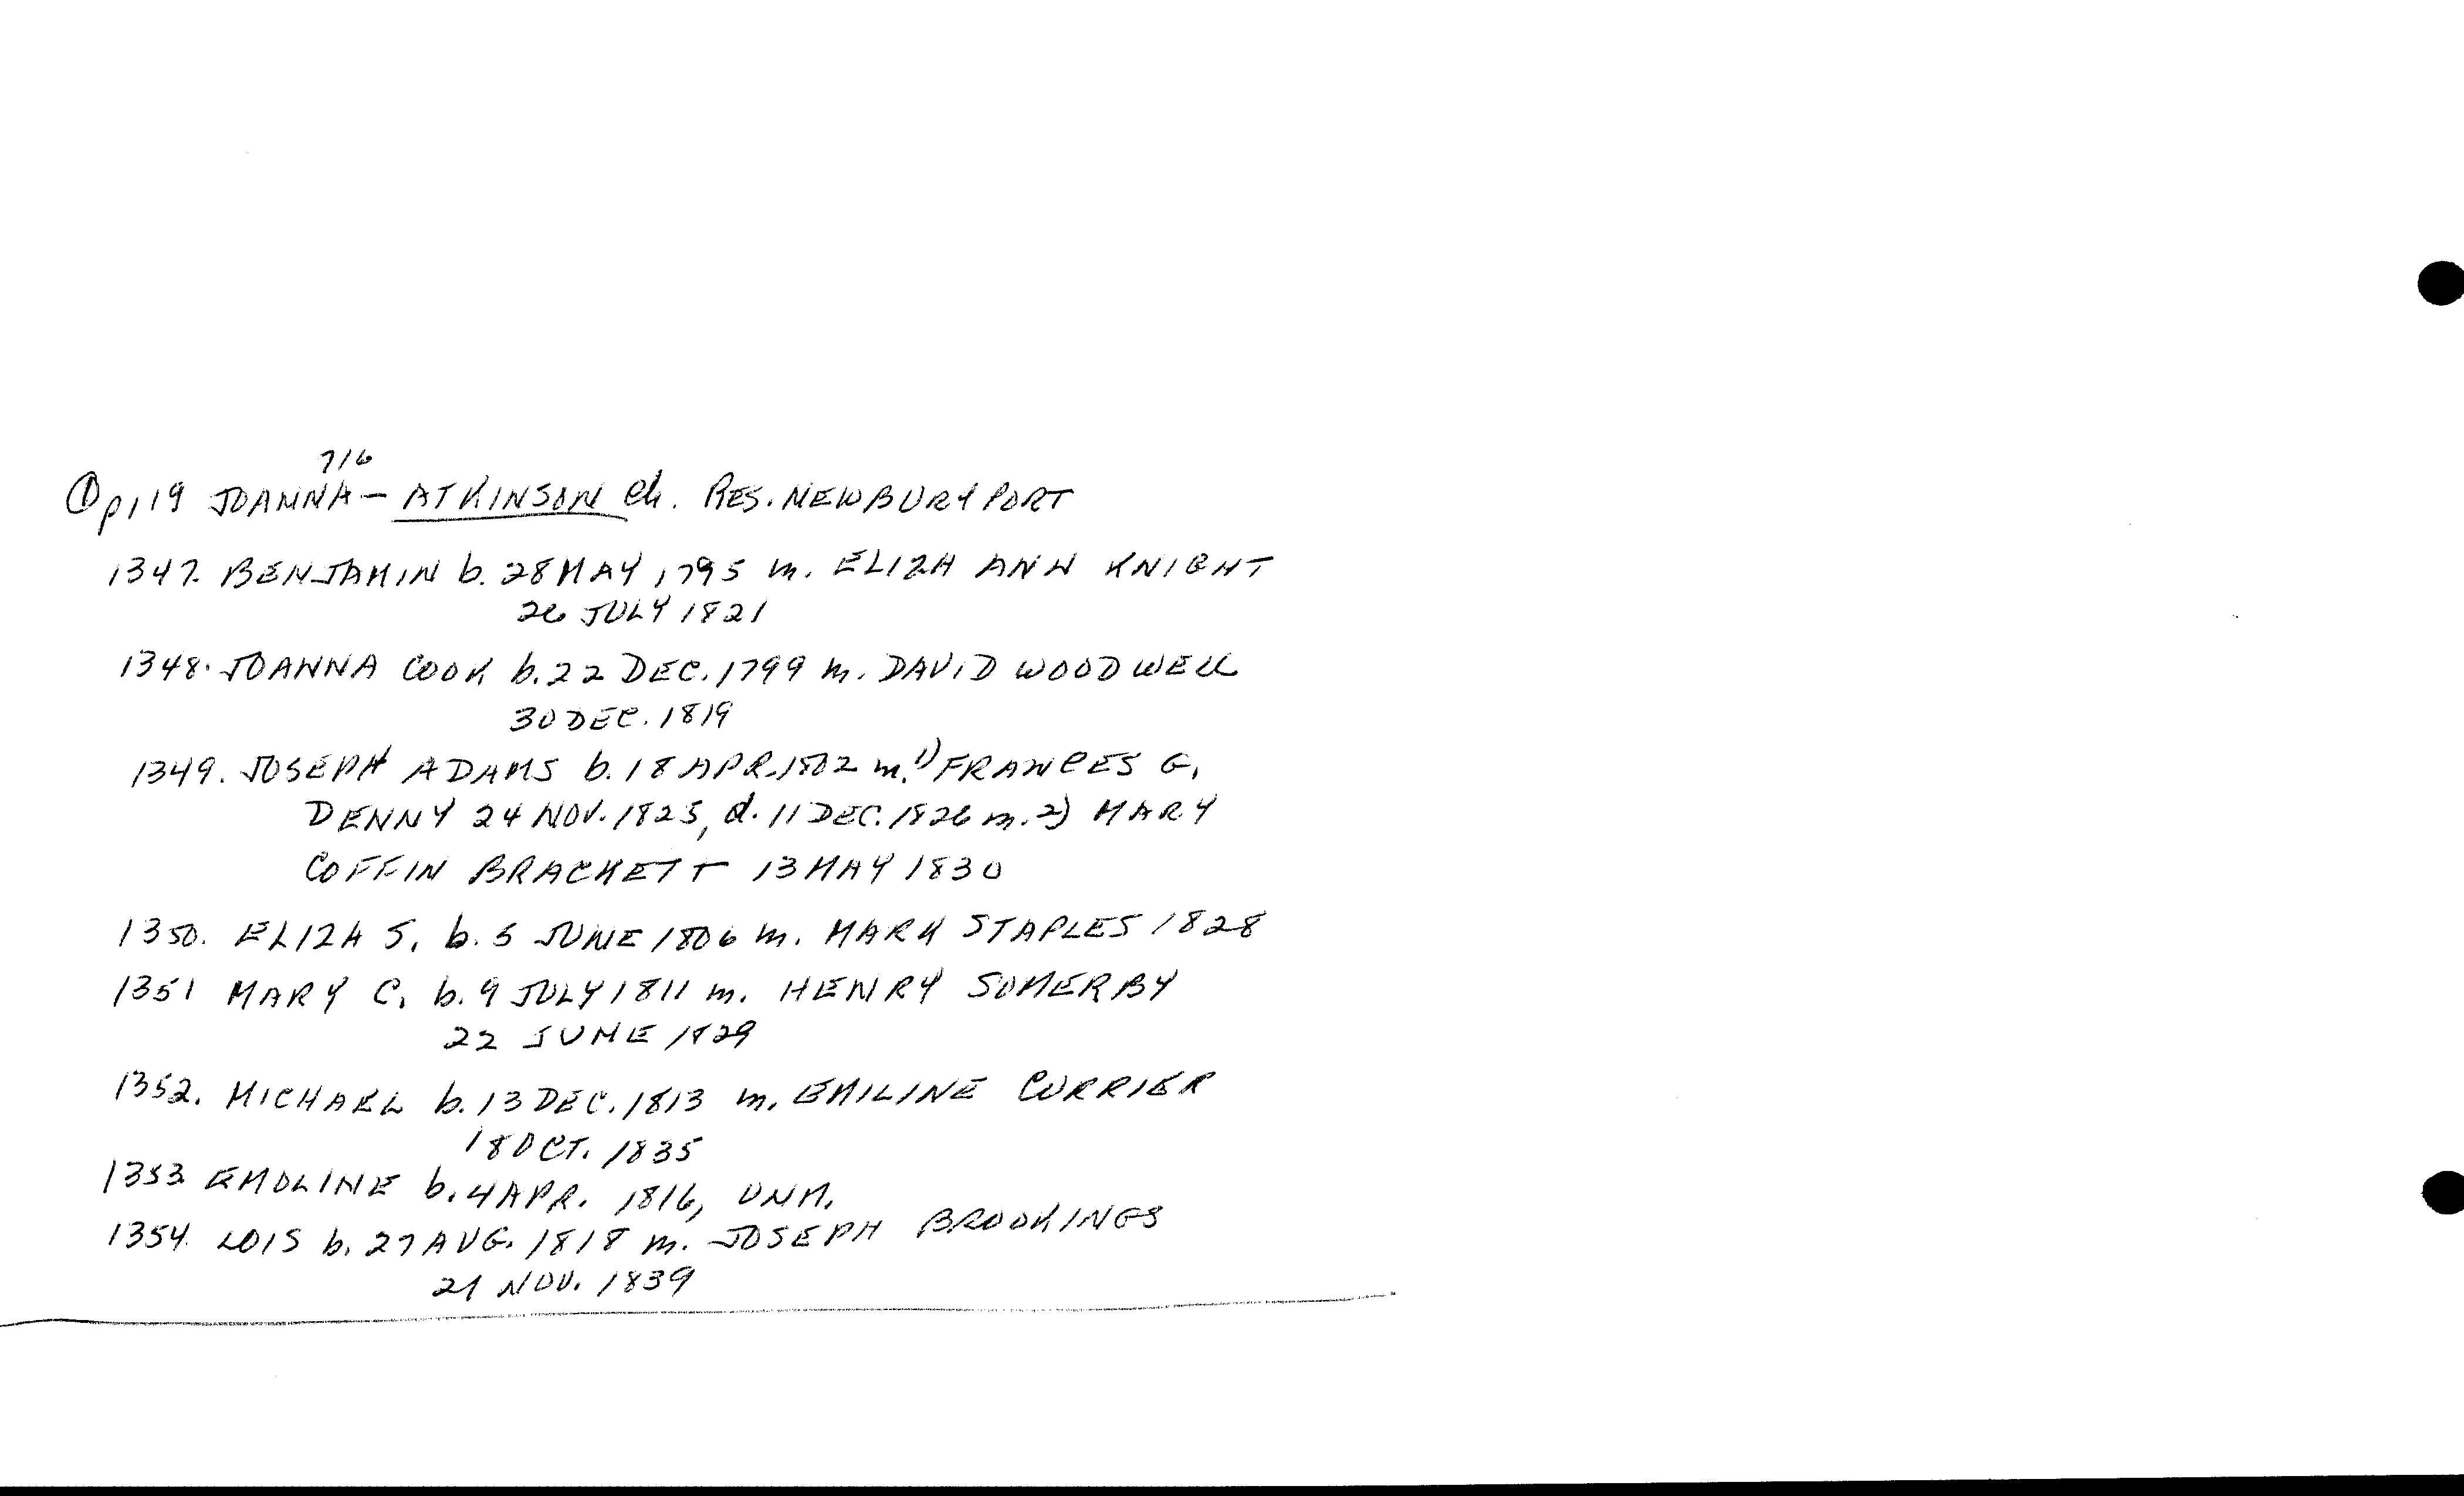 716
① p119 JOANNA - ATKINSON Ch. RES. NEWBURYPORT
1347. BENJAMIN b. 28 MAY 1795 m. ELIZA ANN KNIGHT
26 JULY 1821
1348. JOANNA COOK b. 22 DEC. 1799 m. DAVID WOODWELL
30 DEC. 1819
1349. JOSEPH ADAMS b. 18 APR. 1802 m. 1) FRANCES G.
DENNY 24 NOV. 1825, d. 11 DEC. 1826 m. 2) MARY
COFFIN BRACKETT 13 MAY 1830
1350. ELIZA S. b. 5 JUNE 1806 m. MARK STAPLES 1828
1351 MARY C. b. 9 JULY 1811 m. HENRY SOMERBY
22 JUNE 1829
1352. MICHAEL b. 13 DEC. 1813 m. EMILINE CURRIER
18 OCT. 1835
1353. EMOLINE b. 4 APR. 1816, UNM.
1354. LOIS b. 27 AUG. 1818 m. JOSEPH BROOKINGS
21 NOV. 1839